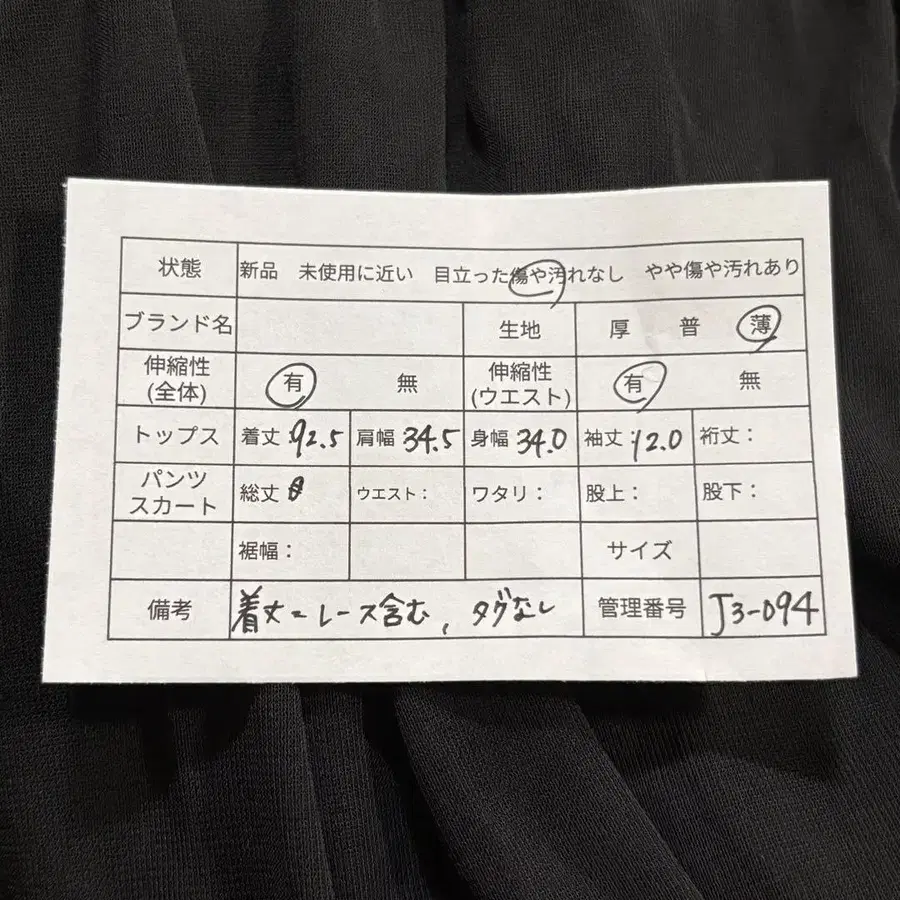 状態 新品 未使用に近い 目立った傷や汚れなし やや傷や汚れあり
ブランド名 生地 厚 普 薄
伸縮性(全体) 有 無 伸縮性(ウエスト) 有 無
トップス 着丈:92.5 肩幅 34.5 身幅 34.0 袖丈:12.0 裄丈:
パンツ スカート 総丈 ウエスト: ワタリ: 股上: 股下:
裾幅: サイズ
備考 着丈=レース含む, タグなし 管理番号 J3-094